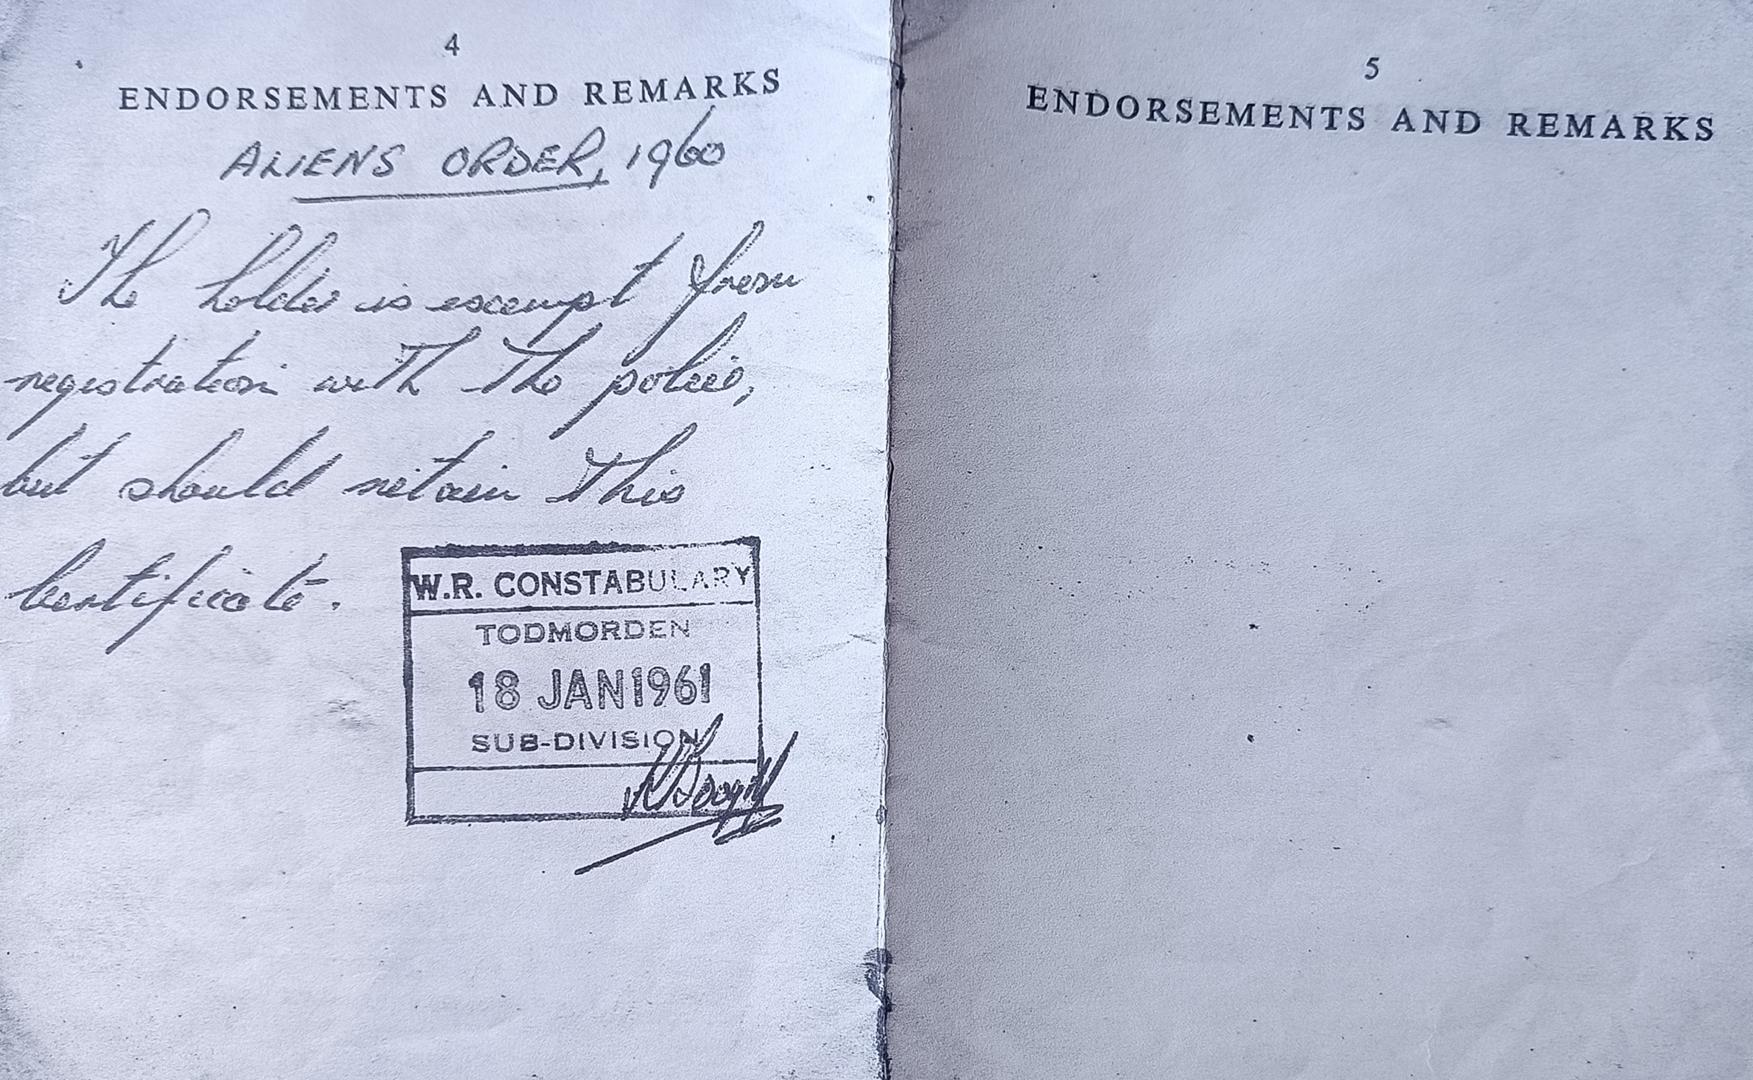 4
ENDORSEMENTS AND REMARKS
ALIENS ORDER, 1960
The holder is exempt from
registration with the police,
but should retain this
Certificate.
W.R. CONSTABULARY
TODMORDEN
18 JAN 1961
SUB-DIVISION
5
ENDORSEMENTS AND REMARKS